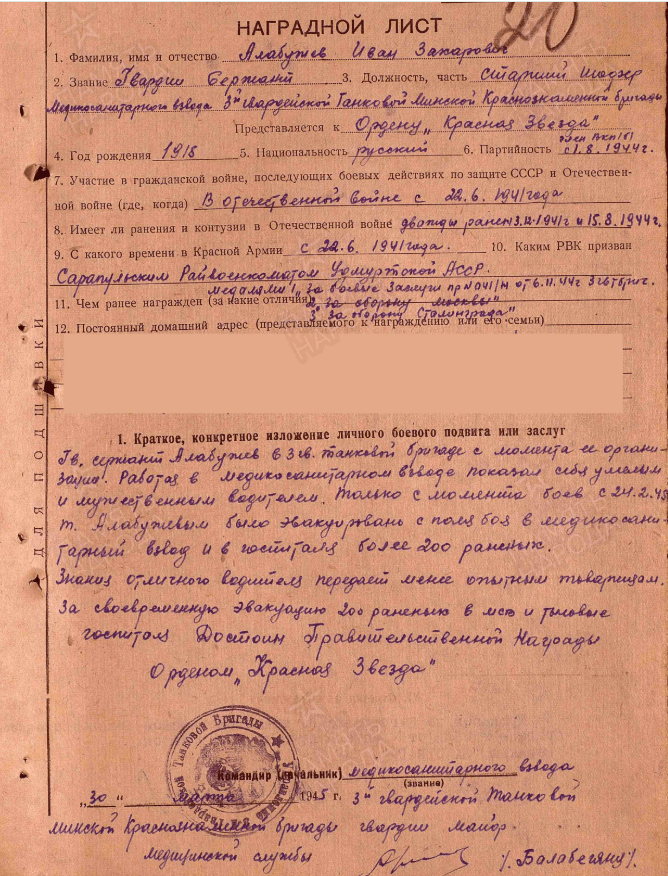 20
НАГРАДНОЙ ЛИСТ
1. Фамилия, имя и отчество Алабужев Иван Захарович
2. Звание Гвардии Сержант 3. Должность, часть Старший Шофер
Медикосанитарного взвода 3й гвардейской Танковой Минской Краснознаменной бригады
Представляется к Ордену „Красная Звезда"
член ВКП(б)
4. Год рождения 1918 5. Национальность русский 6. Партийность с 1.8.1944г.
7. Участие в гражданской войне, последующих боевых действиях по защите СССР и Отечествен-
ной войне (где, когда) В отечественной войне с 22.6.1941 года
8. Имеет ли ранения и контузии в Отечественной войне дважды ранен 3.12.1941г и 15.8.1944г.
9. С какого времени в Красной Армии с 22.6.1941 года. 10. Каким РВК призван
Сарапульским Райвоенкоматом Удмуртской АССР.
медалями 1. „За боевые Заслуги пр N041/н от 6.11.44г 3 гв тбриг.
11. Чем ранее награжден (за какие отличия) 2. За оборону Москвы"
3° За оборону Сталинграда"
12. Постоянный домашний адрес (представляемого к награждению или его семьи)
ДЛЯ ПОДШИВКИ
I. Краткое, конкретное изложение личного боевого подвига или заслуг
Гв. сержант Алабужев в 3 гв. танковой бригаде с момента ее органи-
зации. Работая в медикосанитарном взводе показал себя умелым
и мужественным водителем. Только с момента боев с 24.2.45
т. Алабужевым было эвакуировано с поля боя в медикосани-
тарный взвод и в госпиталя более 200 раненых.
Знания отличного водителя передает менее опытным товарищам.
За своевременную эвакуацию 200 раненых в мсв и тыловые
госпиталя Достоин Правительственной Награды
Орденом „Красная Звезда"
Танковой Бригады
Командир (начальник) медикосанитарного взвода
(звание)
„30" марта 1945 г. 3й гвардейской Танковой
Минской Краснознаменной бригады гвардии майор
медицинской службы /. Балабегянц/.